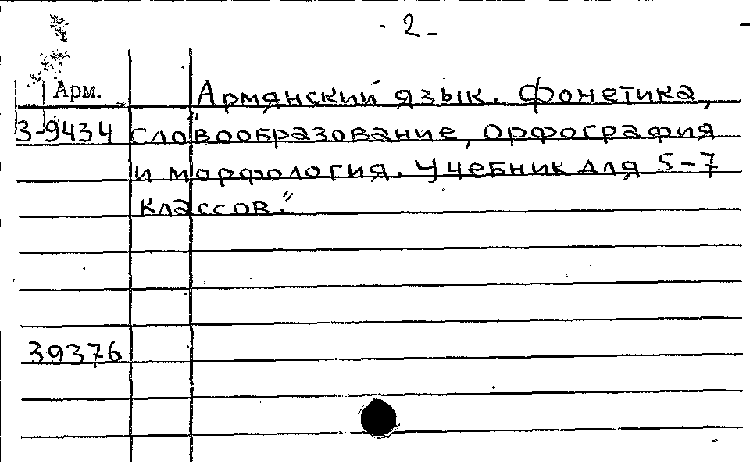 - 2 -
Арм. "Армянский язык. Фонетика,
3-9434 словообразование, орфография
и морфология. Учебник для 5-7
классов."
39376